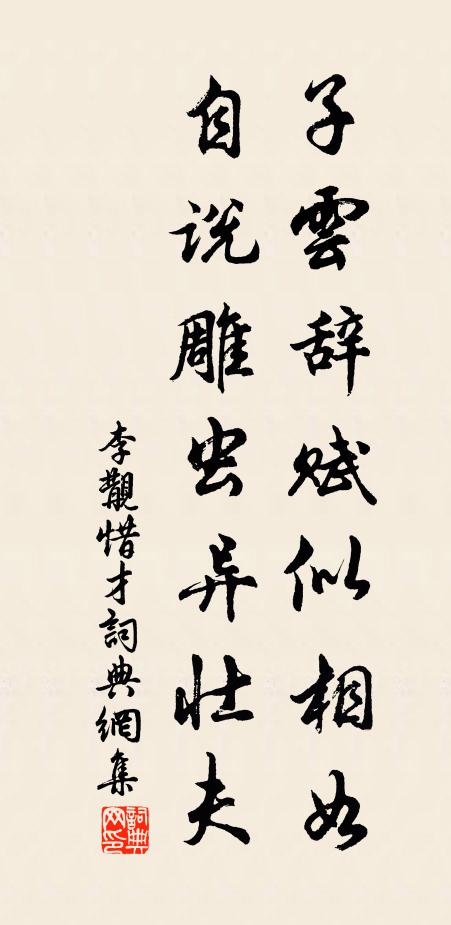 子雲辞赋似相如
自说雕虫异壮夫
李覯惜才詞典網集
詞典網印